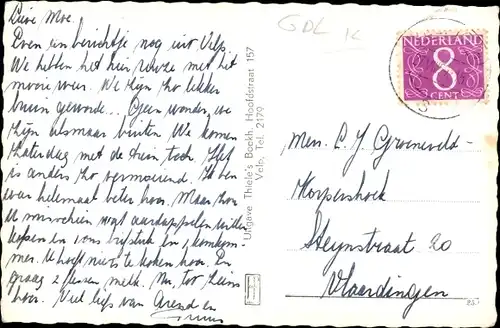 GDL
Lieve Moe.
Even een berichtje nog uit Velp.
We hebben het hier reuze met het
mooie weer. We zijn zo lekker
bruin geworden.. Geen wonder, we
zijn alsmaar buiten. We komen
Zaterdag met de trein toch. Het
is anders zo vermoeiend. Ik ben
weer helemaal beter hoor. Maar zou
U misschien wat aardappelen willen
kopen en ons biefstuk en 1 komkom-
mer. U hoeft niets te koken hoor. En
graag 2 flessen melk. Nu, tot ziens
hoor. Veel liefs van Arend en
Uitgave Thiele's Boekh. Hoofdstraat 157
Velp, Tel. 2179
NEDERLAND
8
CENT
Mevr. L J Groeneveld-
Korpershoek
Steynstraat 20
Vlaardingen